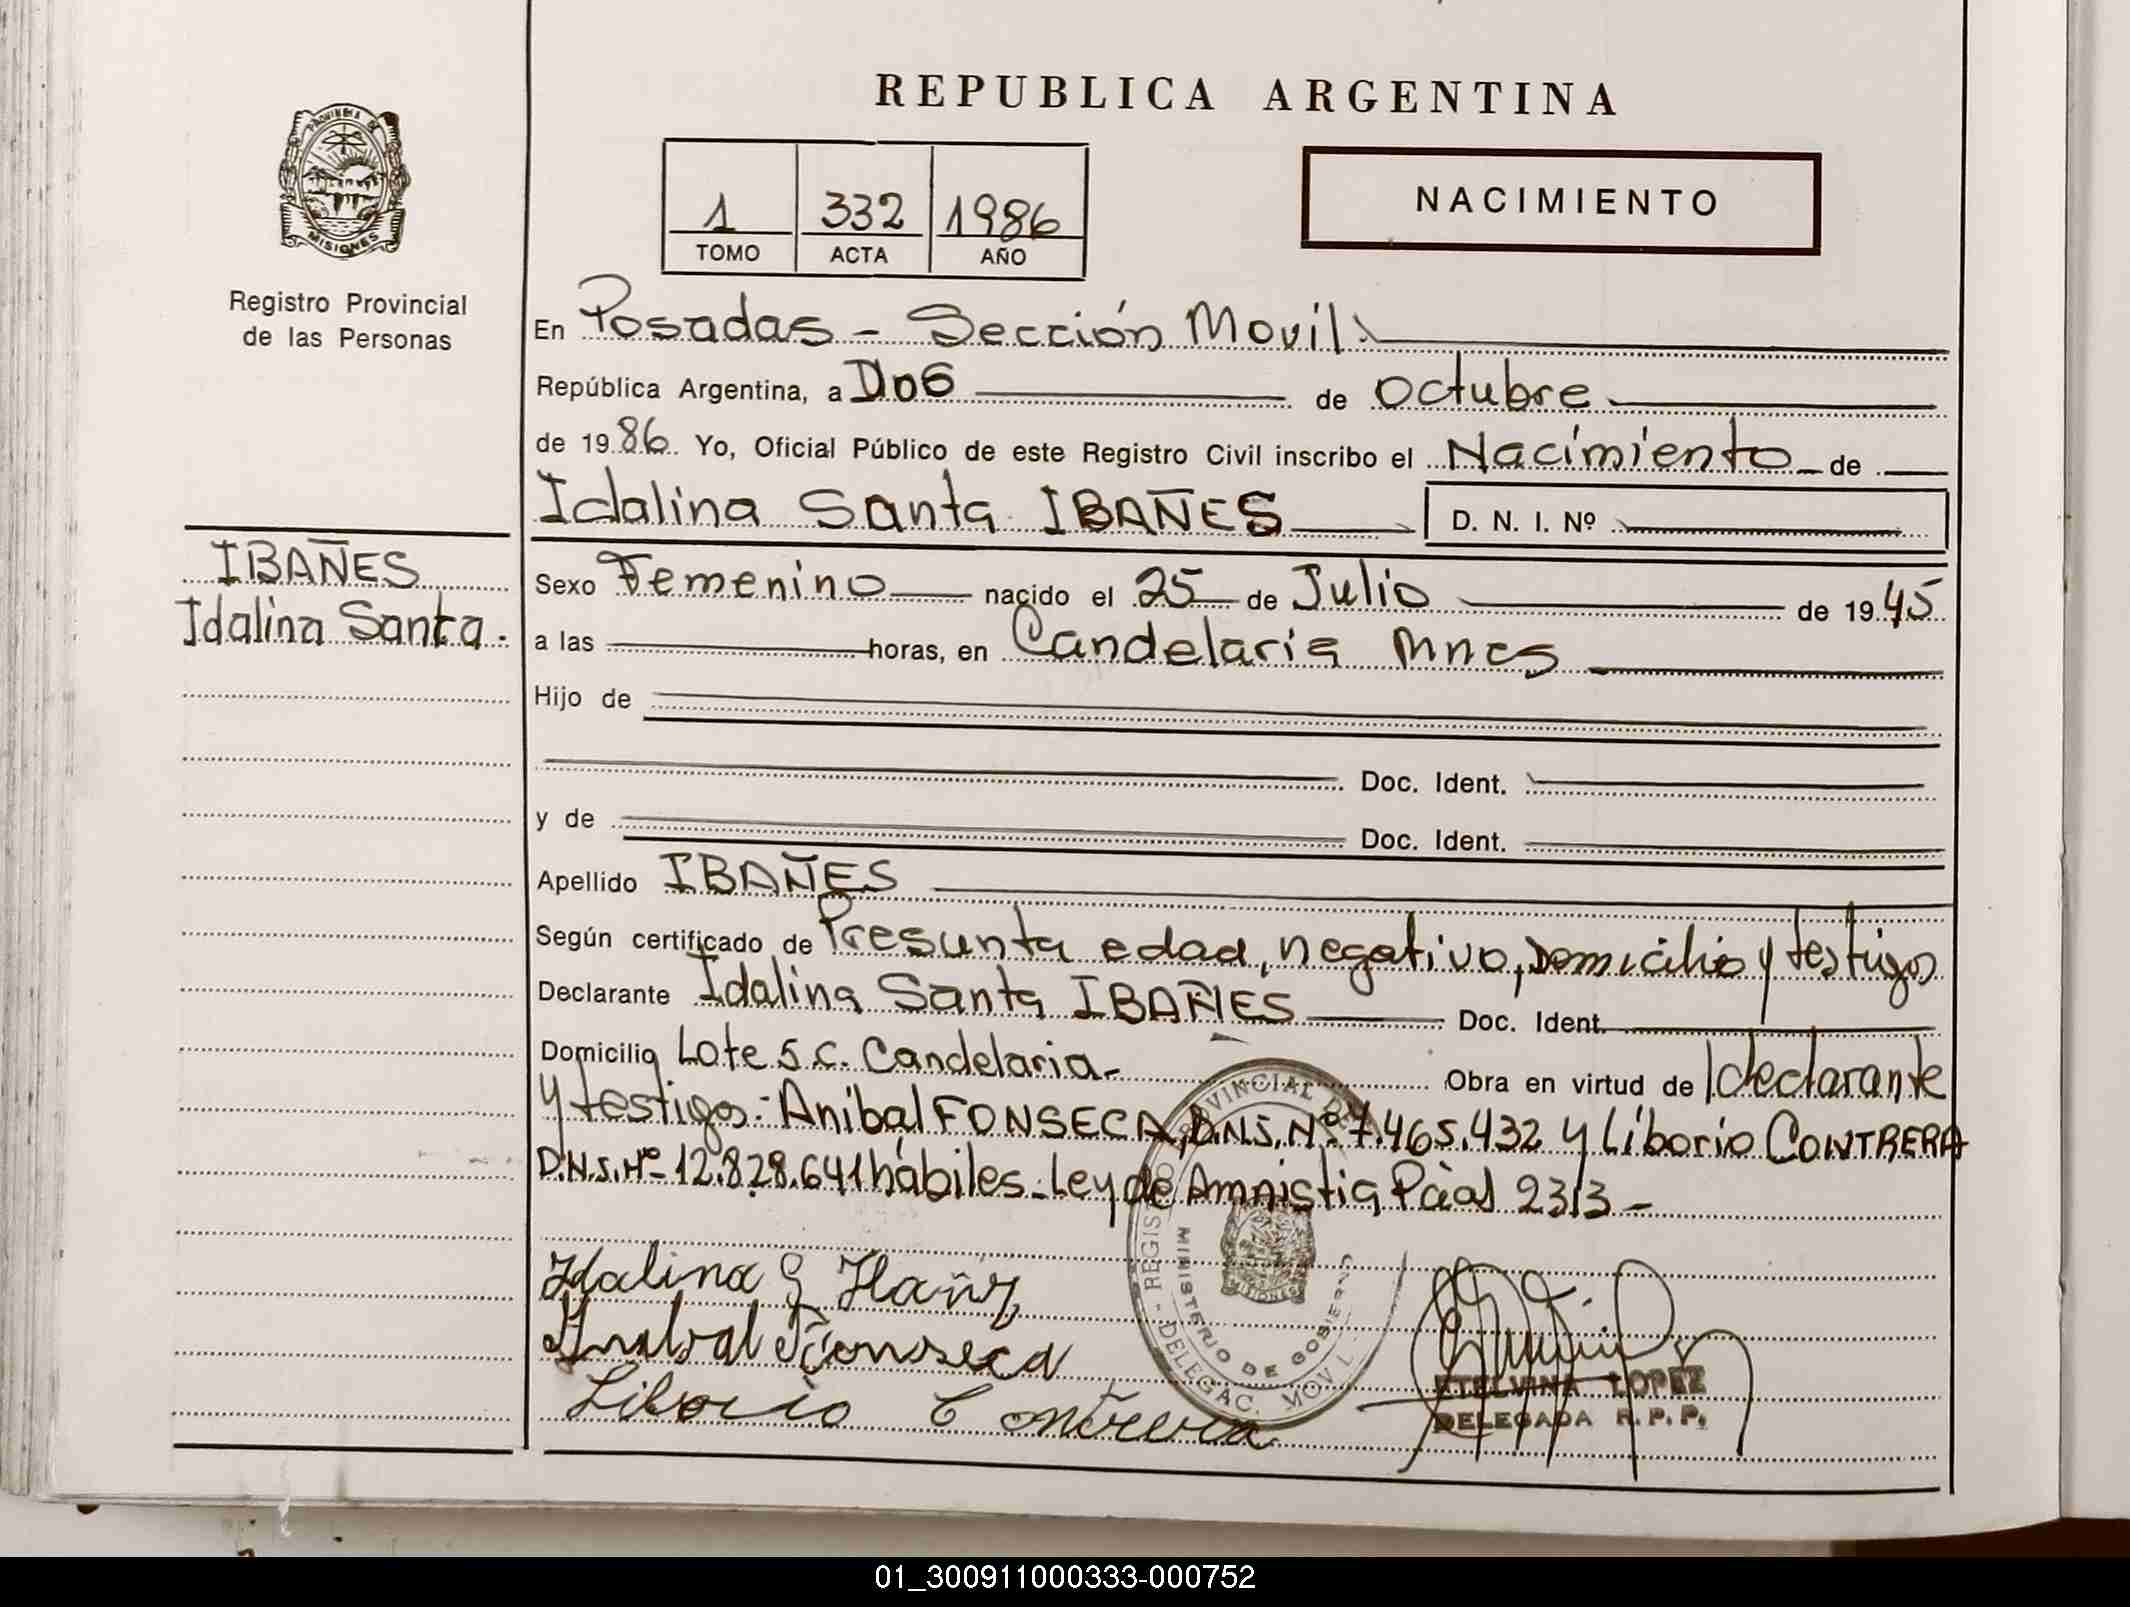 REPUBLICA ARGENTINA
PROVINCIA DE
MISIONES
Registro Provincial
de las Personas
1 332 1986
TOMO ACTA AÑO
NACIMIENTO
En Posadas - Sección Movil
República Argentina, a Dos de octubre
de 1986. Yo, Oficial Público de este Registro Civil inscribo el Nacimiento de
Idalina Santa IBAÑES D. N. I. Nº
IBAÑES
Idalina Santa.
Sexo Femenino nacido el 25 de Julio de 1945
a las horas, en Candelaria Mnes
Hijo de
Doc. Ident.
y de Doc. Ident.
Apellido IBAÑES
Según certificado de Presunta edad, negativo, Domicilio y testigos
Declarante Idalina Santa IBAÑES Doc. Ident.
Domicilio Lote S.C. Candelaria- Obra en virtud de declarante
y testigos: Anibal FONSECA, D.N.I. Nº 7.465.432 y Liborio CONTRERA
D.N.I. Nº 12.828.641 hábiles - Ley de Amnistia 2313 -
Idalina S
Anibal Fonseca
Liborio Contrera
MINISTERIO DE GOBIERNO
DELEGAC. MOVIL
MISIONES
ETELVINA LOPEZ
DELEGADA R.P.P.
01_300911000333-000752